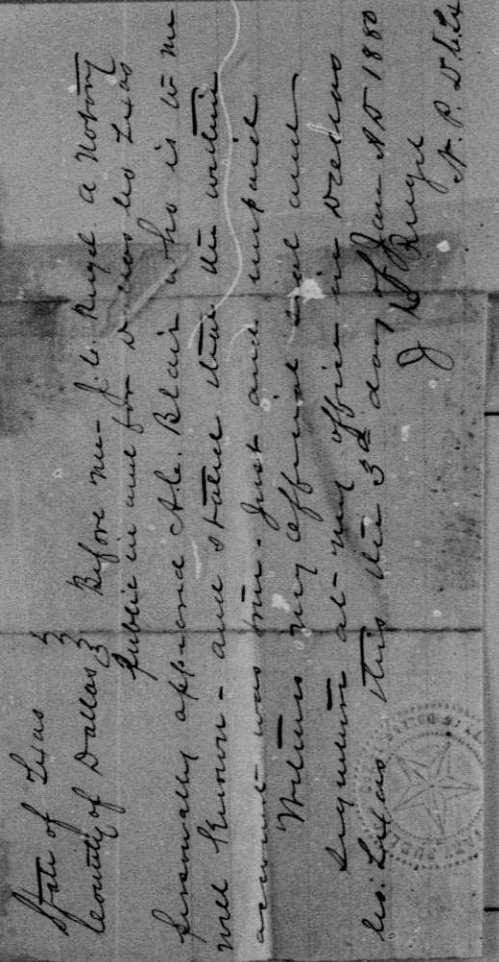 State of Texas }
County of Dallas } Before me - J. C. Rugel a Notary
public in and for Dallas Co Texas
personally appeared A. C. Blair who is to me
well known - and stated that the within
account was true - just and unpaid
Witness my official seal and
signature at my office in Dallas
Co. Texas this the 3d day of Jan AD 1880
J C Rugel
N. P. D. C. Tx